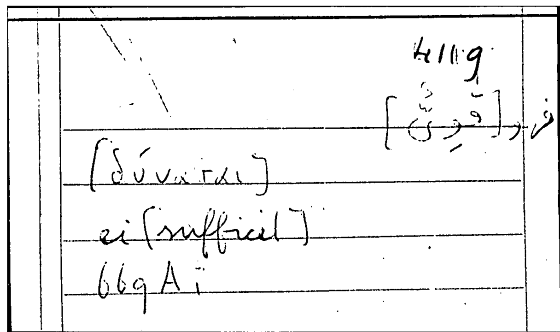 4119
[قَوِيَ]
[δύναται]
ei [sufficit]
669 A i